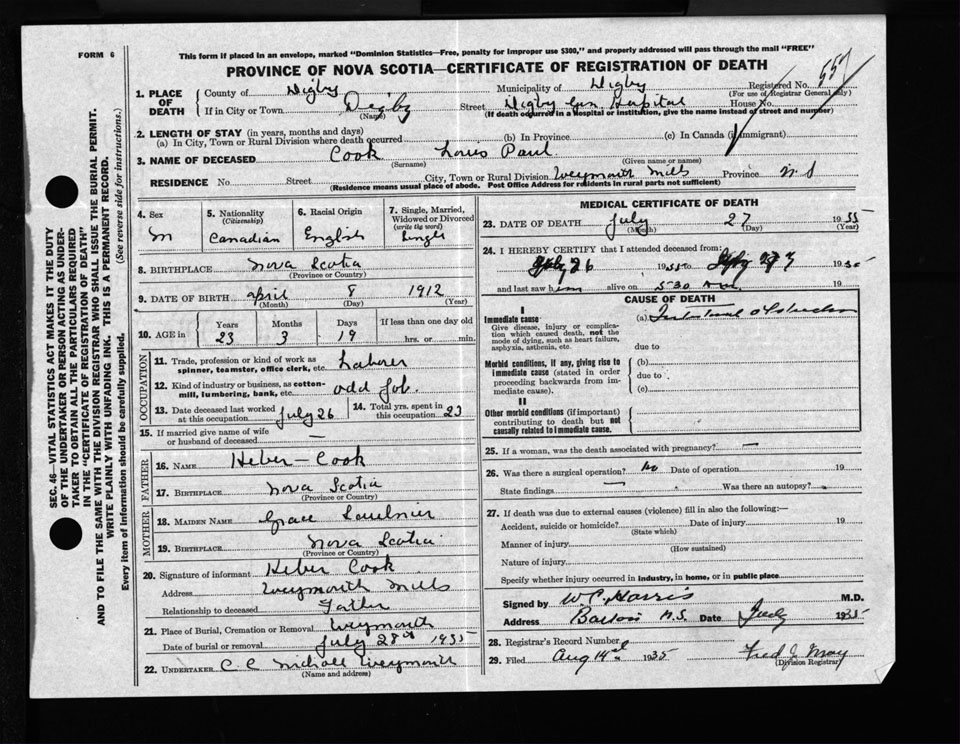 FORM 6
This form if placed in an envelope, marked "Dominion Statistics—Free, penalty for improper use $300," and properly addressed will pass through the mail "FREE"
PROVINCE OF NOVA SCOTIA—CERTIFICATE OF REGISTRATION OF DEATH
SEC. 46—VITAL STATISTICS ACT MAKES IT THE DUTY
OF THE UNDERTAKER OR PERSON ACTING AS UNDER-
TAKER TO OBTAIN ALL THE PARTICULARS REQUIRED
IN THE "CERTIFICATE OF REGISTRATION OF DEATH"
AND TO FILE THE SAME WITH THE DIVISION REGISTRAR WHO SHALL ISSUE THE BURIAL PERMIT.
WRITE PLAINLY WITH UNFADING INK. THIS IS A PERMANENT RECORD.
Every item of information should be carefully supplied. (See reverse side for instructions.)
1. PLACE OF DEATH
County of Digby Municipality of Digby Registered No. 557
(For use of Registrar General only)
If in City or Town Digby Street Digby Gen Hospital House No.
(Name) (If death occurred in a Hospital or institution, give the name instead of street and number)
2. LENGTH OF STAY (in years, months and days)
(a) In City, Town or Rural Division where death occurred (b) In Province (c) In Canada (if immigrant)
3. NAME OF DECEASED Cook Louis Paul
(Surname) (Given name or names)
RESIDENCE No Street City, Town or Rural Division Weymouth Mills Province N S
(Residence means usual place of abode. Post Office Address for residents in rural parts not sufficient)
4. Sex
M
5. Nationality
(Citizenship)
Canadian
6. Racial Origin
English
7. Single, Married,
Widowed or Divorced
(write the word)
Single
8. BIRTHPLACE Nova Scotia
(Province or Country)
9. DATE OF BIRTH April 8 1912
(Month) (Day) (Year)
10. AGE in
Years Months Days If less than one day old
23 3 19 hrs. or min.
OCCUPATION
11. Trade, profession or kind of work as
spinner, teamster, office clerk, etc. Laborer
12. Kind of industry or business, as cotton-
mill, lumbering, bank, etc. odd Job.
13. Date deceased last worked
at this occupation July 26
14. Total yrs. spent in
this occupation 23
15. If married give name of wife
or husband of deceased —
FATHER
16. NAME Heber - Cook
17. BIRTHPLACE Nova Scotia
(Province or Country)
MOTHER
18. MAIDEN NAME Grace Saulnier
19. BIRTHPLACE Nova Scotia
(Province or Country)
20. Signature of informant Heber Cook
Address Weymouth Mills
Relationship to deceased Father
21. Place of Burial, Cremation or Removal Weymouth
Date of burial or removal July 28th 1935
22. UNDERTAKER C. C Nichols Weymouth
(Name and address)
MEDICAL CERTIFICATE OF DEATH
23. DATE OF DEATH July 27 1935
(Month) (Day) (Year)
24. I HEREBY CERTIFY that I attended deceased from:
July 26 1935 to July 27 1935
and last saw him alive on 5-30
CAUSE OF DEATH
I
Immediate cause:
Give disease, injury or complica-
tion which caused death, not the
mode of dying, such as heart failure,
asphyxia, asthenia, etc.
(a) Intestinal obstruction
due to
Morbid conditions, if any, giving rise to
immediate cause (stated in order
proceeding backwards from im-
mediate cause).
(b)
due to
(c)
II
Other morbid conditions (if important)
contributing to death but not
causally related to immediate cause.
25. If a woman, was the death associated with pregnancy? —
26. Was there a surgical operation? No Date of operation 19
State findings — Was there an autopsy?
27. If death was due to external causes (violence) fill in also the following:—
Accident, suicide or homicide? Date of injury 19
(State which)
Manner of injury
(How sustained)
Nature of injury
Specify whether injury occurred in industry, in home, or in public place
Signed by W.C. Harris M.D.
Address Barton N.S. Date July 1935
28. Registrar's Record Number
29. Filed Aug 14th 1935 Fred J. May
(Division Registrar)